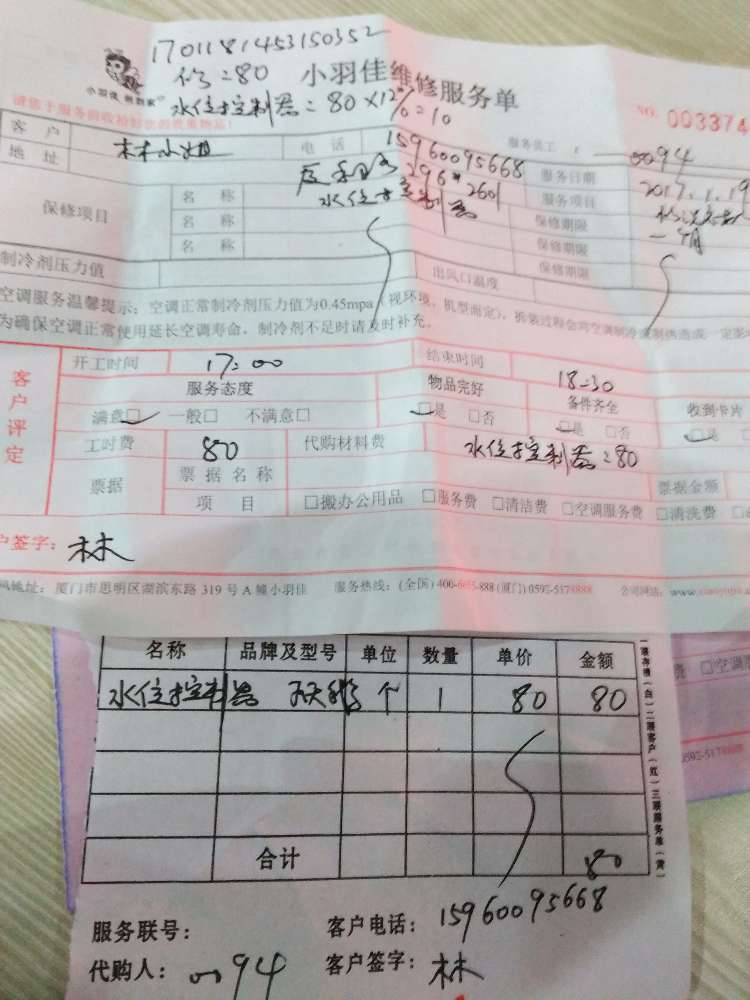 1701181453150352
修=80 小羽佳维修服务单
小羽佳 熊到家
水位控制器=80×12%=10
NO. 003374
请您于服务前收拾好您的贵重物品!
客户 林小姐 电话 15960095668 服务员工: 0094
地址 296*260 服务日期 2017.1.19
保修项目 名称 水位控制器 服务项目
名称 保修期限 一个月
名称 保修期限
保修期限
制冷剂压力值 出风口温度
空调服务温馨提示:空调正常制冷剂压力值为0.45mpa(视环境、机型而定),拆装过程会对空调制冷或制热造成一定影
为确保空调正常使用延长空调寿命,制冷剂不足时请及时补充。
客户评定
开工时间 17:00 结束时间 18-30
服务态度 物品完好 备件齐全 收到卡片
满意☑ 一般□ 不满意□ ☑是 □否 ☑是 □否 ☑是
工时费 80 代购材料费 水位控制器=80
票据 票据名称 票据金额
项目 □搬办公用品 □服务费 □清洁费 □空调服务费 □清洗费
户签字: 林
地址:厦门市思明区湖滨东路319号A幢小羽佳 服务热线:(全国)400-6655-888(厦门)0592-5178888 公司网站:
□空调
0592-5178888
名称 品牌及型号 单位 数量 单价 金额
水位控制器 个 1 80 80
合计 80
一联存根(白)二联客户(红)三联服务单(黄)
服务联号: 客户电话: 15960095668
代购人: 0094 客户签字: 林